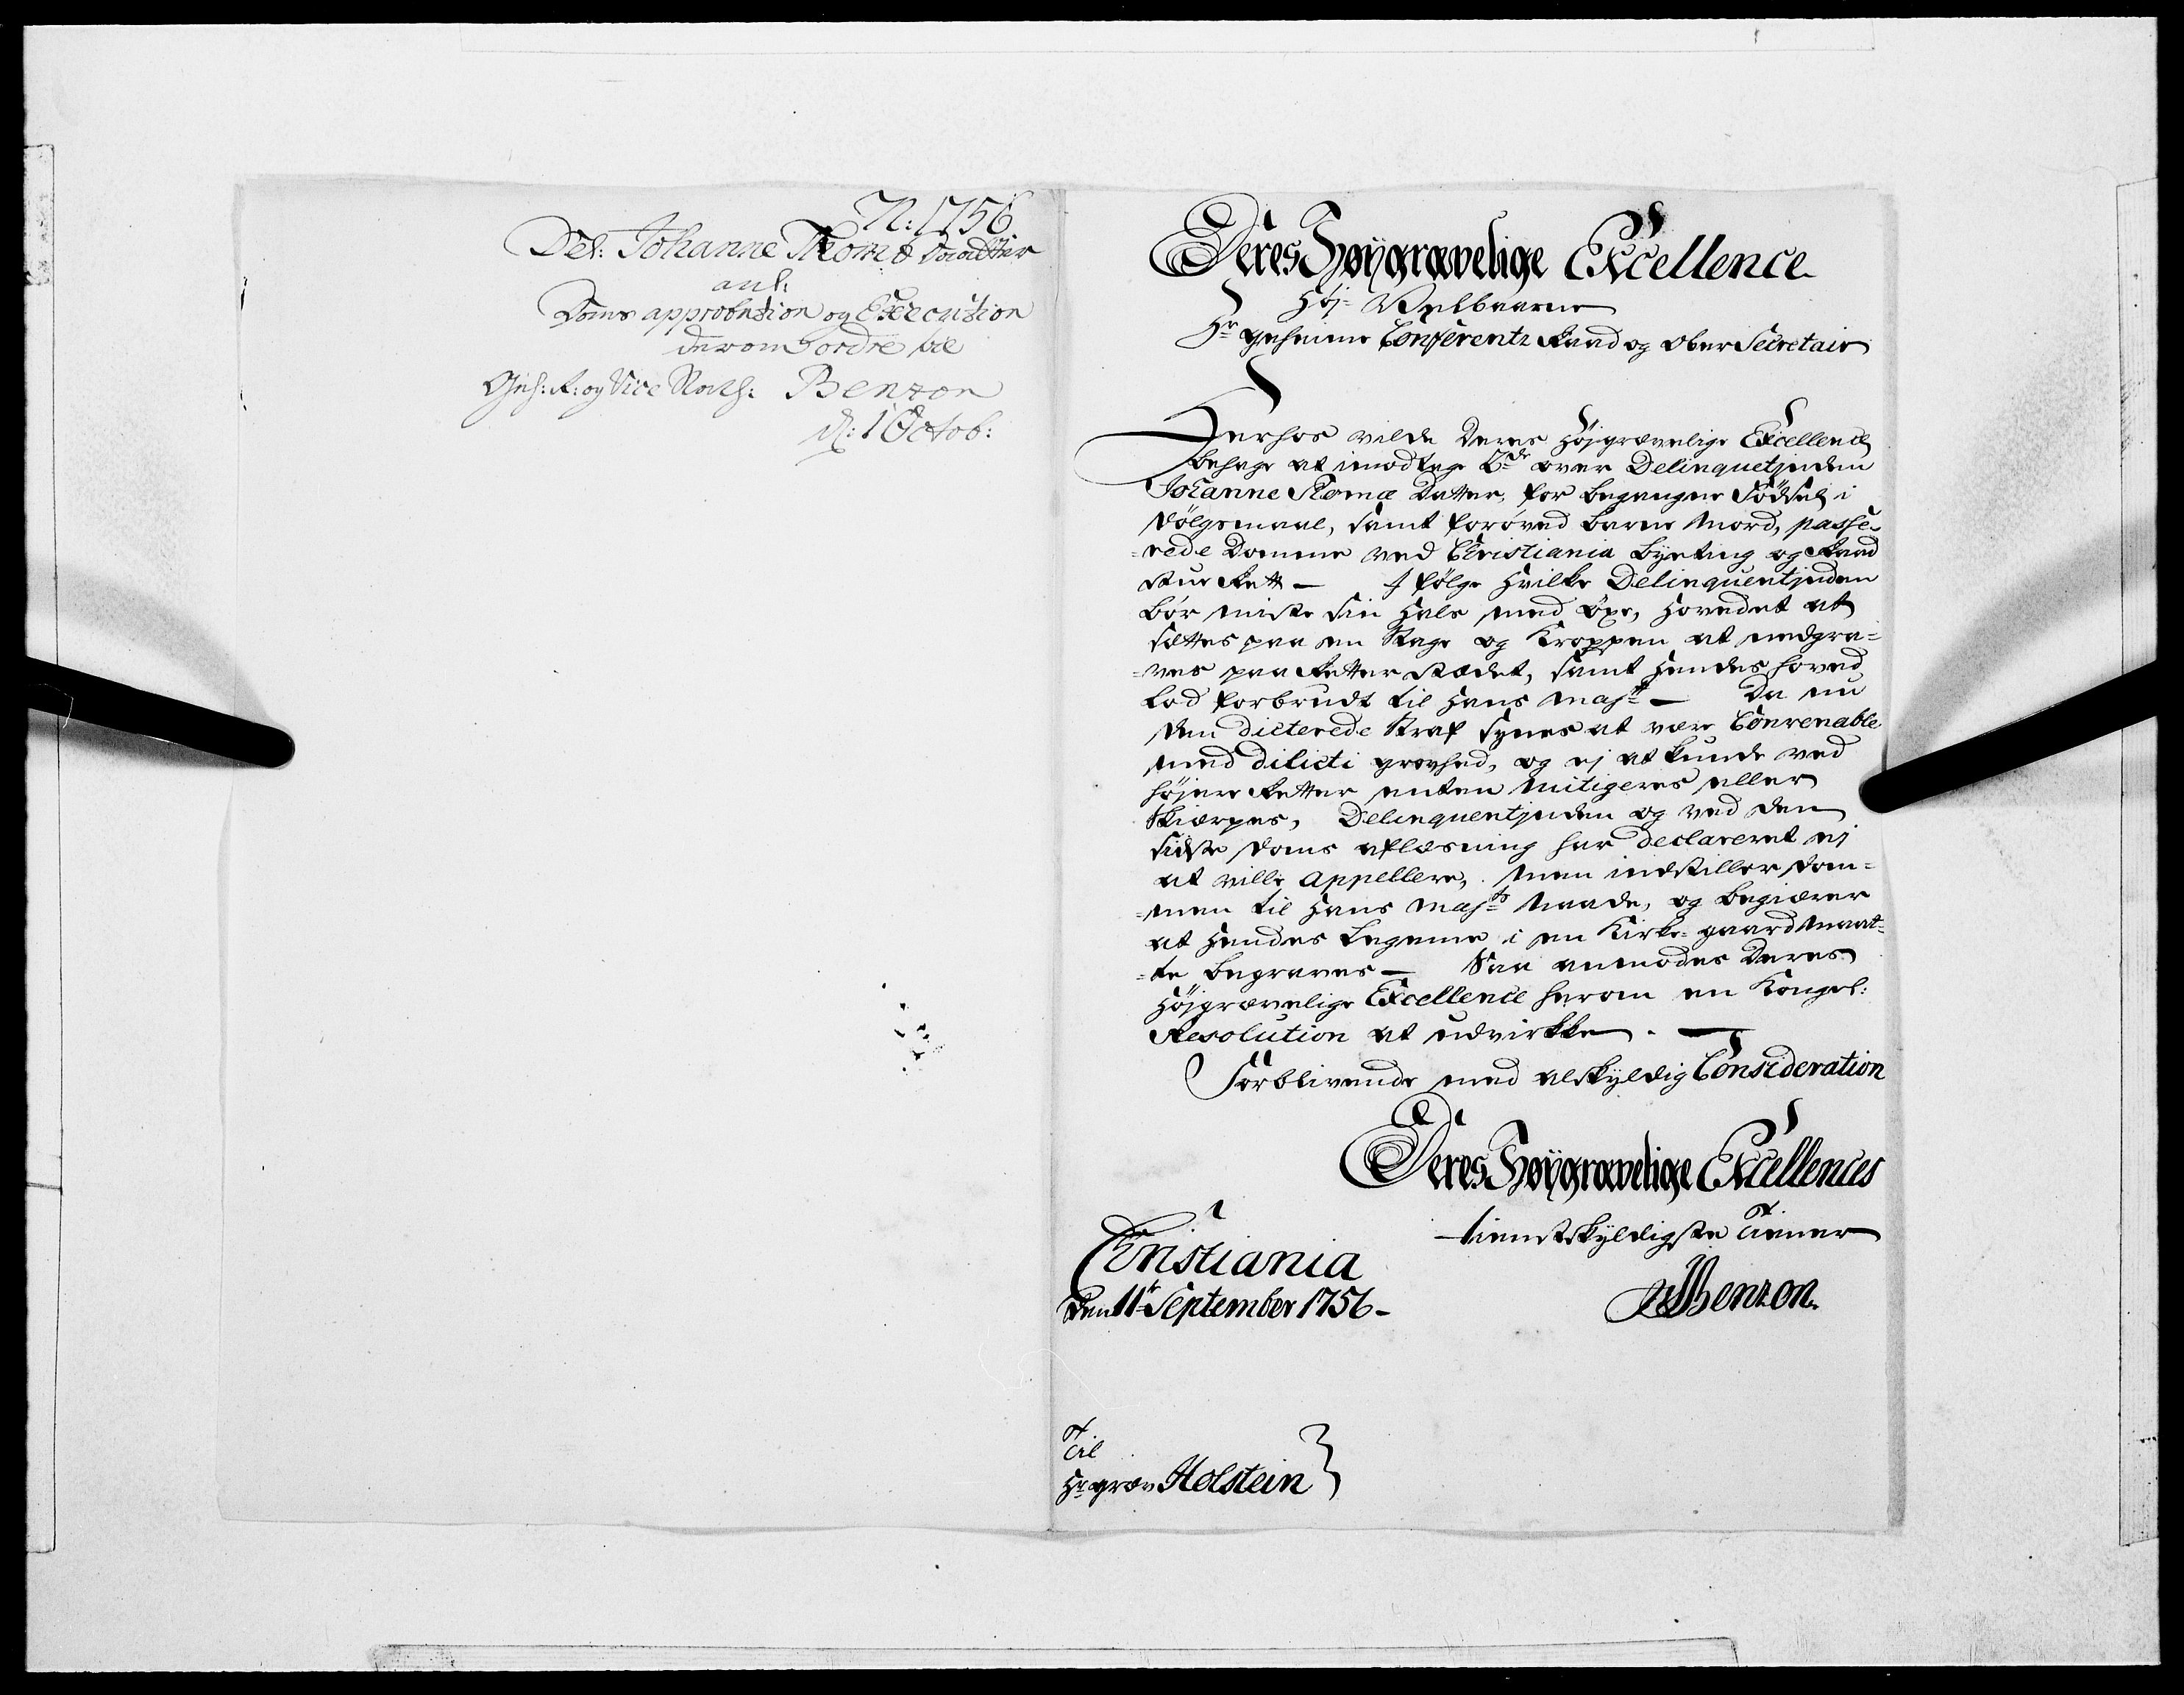 N: 1756
Del: Johanne Thomæ Daatter
anl:
Doms approbation og Execution
derom ordre til
Geh: R: og Vice Stath: Benzon
d: 1 Octob:
Deres Høygrævelige Excellence
Høj- Velbaarne
Hr geheime Conferentz Raad og Ober Secretair
Herhos vilde Deres Højgrævelige Excellence
behage at imodtage 2de over Delinquetjnden
Johanne Thomæ Datter, for begangne Födsel i
Dölgsmaal, samt forøved barne Mord, passe-
=rede Domme ved Christiania byeting og Raad
stue Rett — I følge Hvilke Delinquentjnden
bör miste sin Hals med Öxe, Hovedet at
sættes paa en Stage og Kroppen at nedgra=
=ves paa Retter Stædet, samt Hendes hoved
lod forbrudt til Hans Majtt — Da nu
den dicterede Straf synes at være Convenable
med dilicti grovhed, og ej at kunde ved
højere Retter enten Mitigeres eller
Skiærpes, Delinquentjnden og ved den
sidste Doms aflæsning har declareret ej
at ville appellere, Men indstiller Dom=
=men til Hans Majts Naade, og begiærer
at Hendes Legeme i en Kirke-gaard Maat=
=te begraves — Saa anmodes Deres
Højgrævelige Excellence herom en Kongel:
Resolution at udvirkke. —
Forblivende med alskyldig Consideration
Deres Høygrævelige Excellences
tienstskyldigste Tiener
Christiania
Den 11te September 1756-
Benzon.
Til
Hr græv Holstein